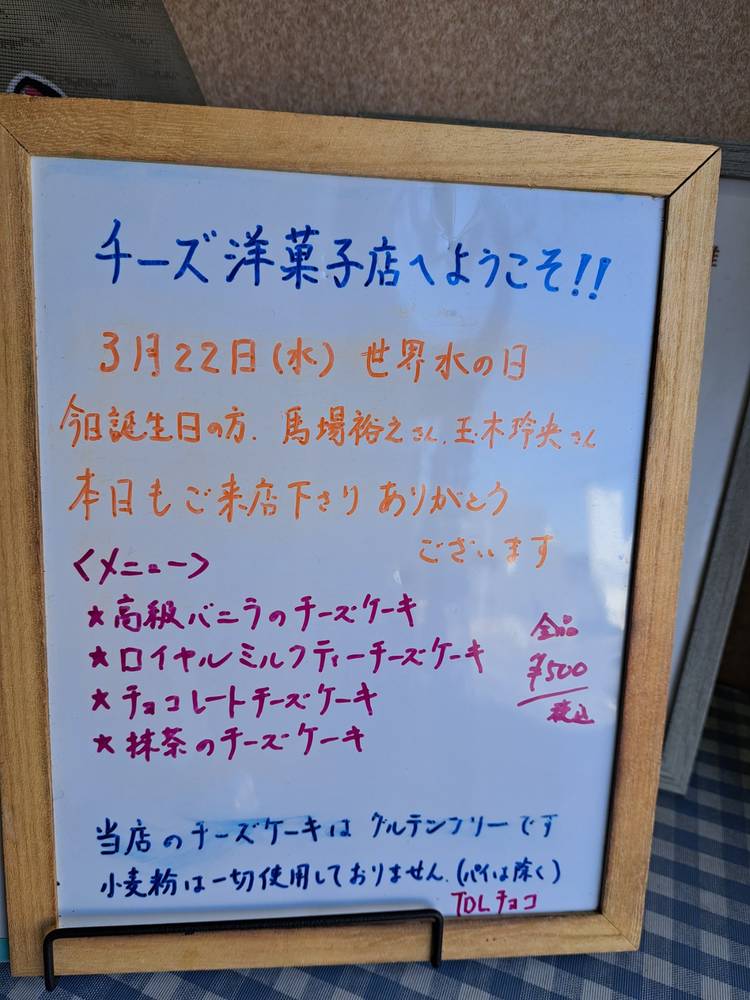 チーズ洋菓子店へようこそ!!
3月22日(水) 世界水の日
今日誕生日の方、馬場裕之さん、玉木玲央さん
本日もご来店下さり ありがとう
ございます
<メニュー>
★高級バニラのチーズケーキ
★ロイヤルミルクティーチーズケーキ
★チョコレートチーズケーキ
★抹茶のチーズケーキ
全品
¥500
税込
当店のチーズケーキは グルテンフリーです
小麦粉は一切使用しておりません。(パイは除く)
TDLチョコ